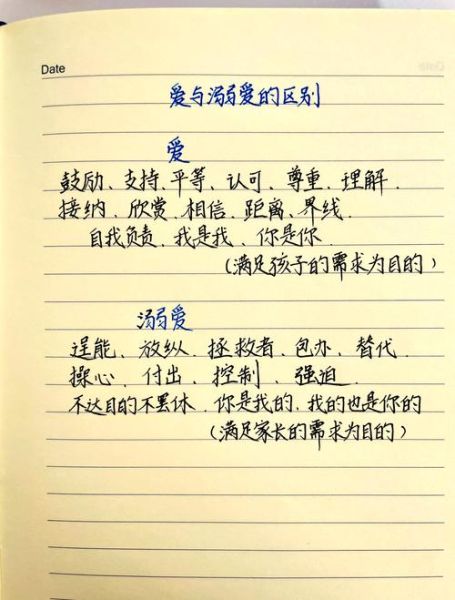 Date
爱与溺爱的区别
爱
鼓励、支持、平等、认可、尊重、理解.
接纳、欣赏、相信、距离、界线.
自我负责、我是我、你是你.
(满足孩子的需求为目的)
溺爱
逞能、放纵、拯救者、包办、替代.
操心、付出、控制、强迫.
不达目的不罢休、你是我的、我的也是你的
(满足家长的需求为目的)